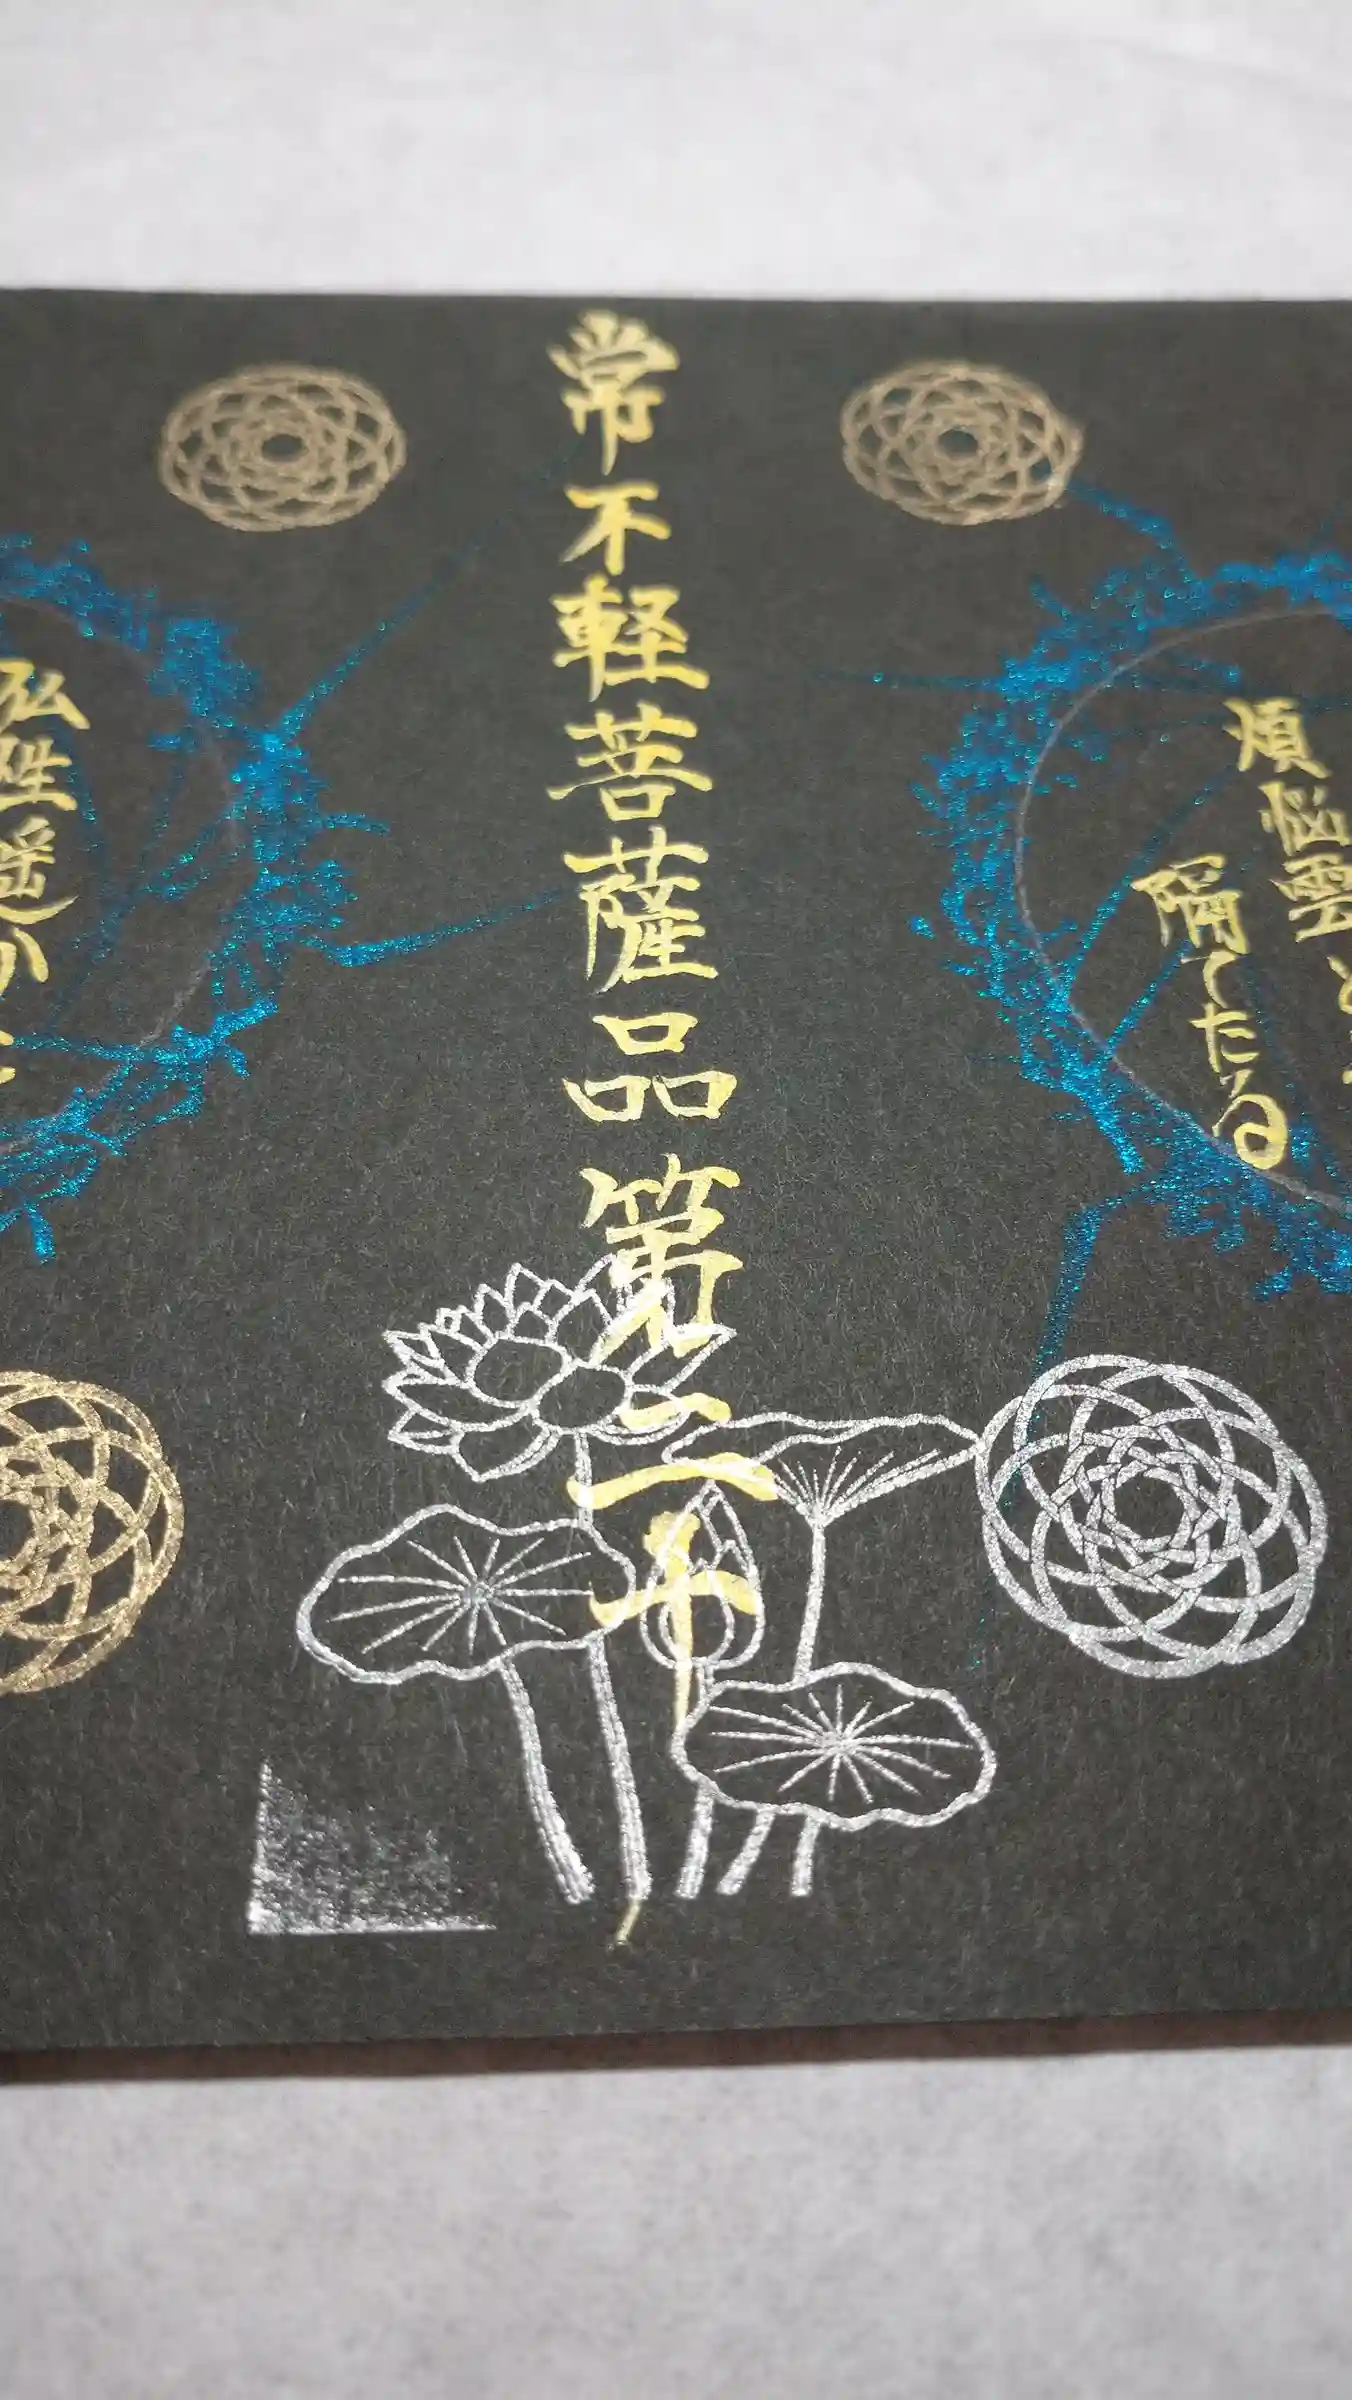 煩悩雲
隔てたる
常不軽菩薩品第二十
性遥か